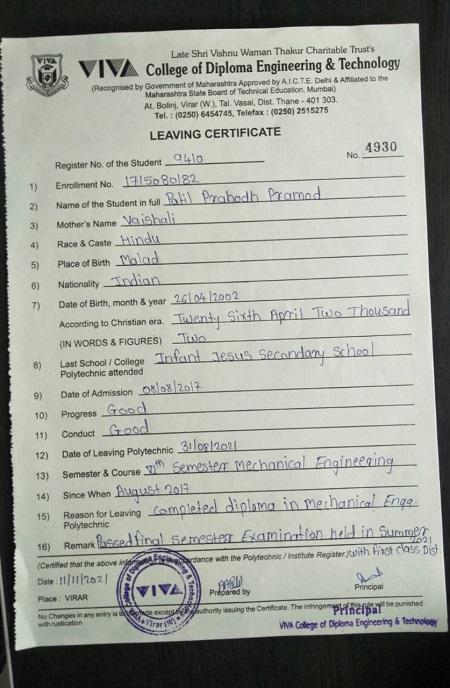 Late Shri Vishnu Waman Thakur Charitable Trust's
VIVA College of Diploma Engineering & Technology
(Recognised by Government of Maharashtra Approved by A.I.C.T.E. Delhi & Affiliated to the
Maharashtra State Board of Technical Education, Mumbai)
At. Bolinj, Virar (W.), Tal. Vasai, Dist. Thane - 401 303.
Tel. : (0250) 6454745, Telefax : (0250) 2515275
LEAVING CERTIFICATE
Register No. of the Student 9410 No. 4930
1) Enrollment No. 1715080182
2) Name of the Student in full Patil Prabodh Pramod
3) Mother's Name Vaishali
4) Race & Caste Hindu
5) Place of Birth Malad
6) Nationality Indian
7) Date of Birth, month & year 26/04/2002
According to Christian era. Twenty Sixth April Two Thousand
(IN WORDS & FIGURES) Two
8) Last School / College Infant Jesus Secondary School
Polytechnic attended
9) Date of Admission 08/08/2017
10) Progress Good
11) Conduct Good
12) Date of Leaving Polytechnic 31/08/2021
13) Semester & Course VIth Semester Mechanical Engineering
14) Since When August 2017
15) Reason for Leaving completed diploma in Mechanical Engg.
Polytechnic
16) Remark Passed final Semester Examination held in Summer 2021
(Certified that the above in accordance with the Polytechnic / Institute Register) with first class Dist.
Date : 11/11/2021
Place : VIRAR Prepared by Principal
No Changes in any entry is to made except by authority issuing the Certificate. The infringement of this rule will be punished
with rustication
Principal
VIVA College of Diploma Engineering & Technology
VIVA